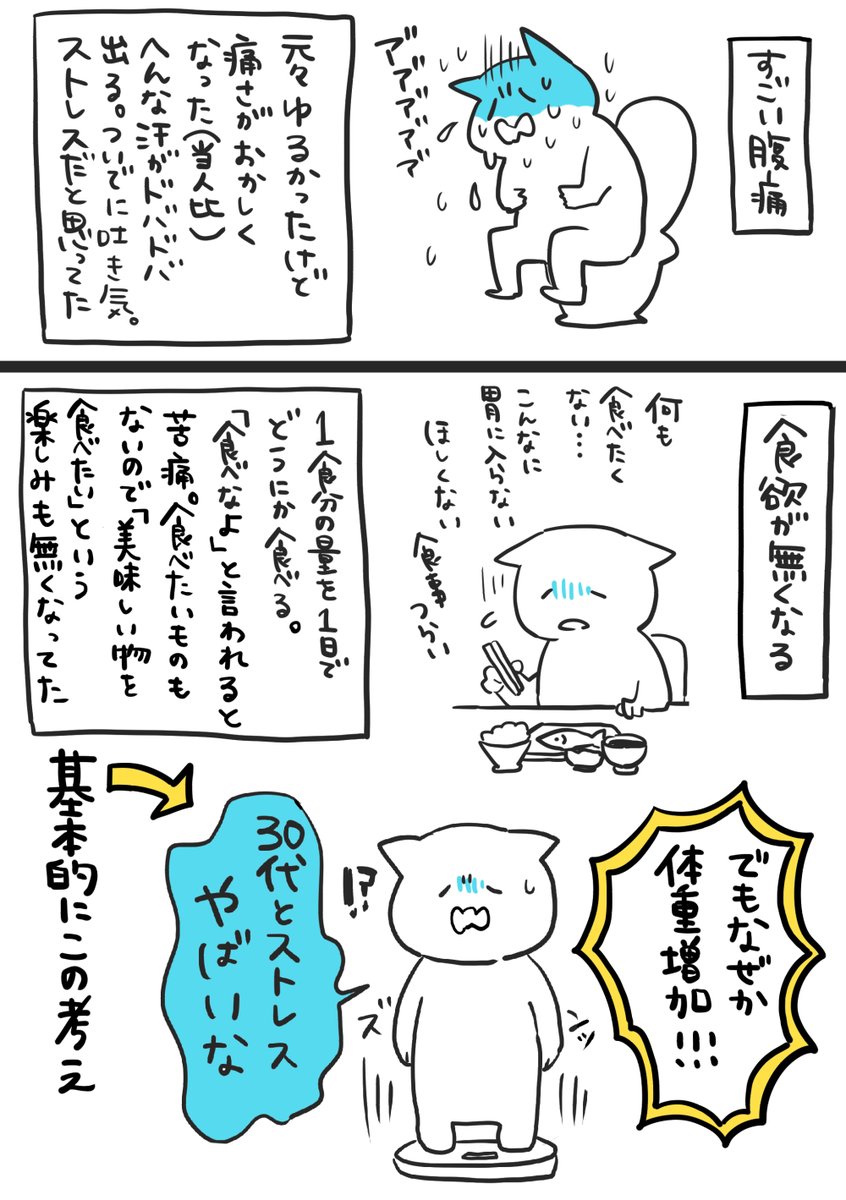 すごい腹痛
アアアアアア
元々ゆるかったけど
痛さがおかしく
なった(当人比)
へんな汗がドバドバ
出る。ついでに吐き気。
ストレスだと思ってた
食欲が無くなる
何も
食べたく
ない…
こんなに
胃に入らない
ほしくない
食事
つらい
1食分の量を1日で
どうにか食べる。
「食べなよ」と言われると
苦痛。食べたいものも
ないので「美味しい物を
食べたい」という
楽しみも無くなってた
でもなぜか
体重増加!!!
!?
ズーンッ
30代とストレス
やばいな
基本的にこの考え